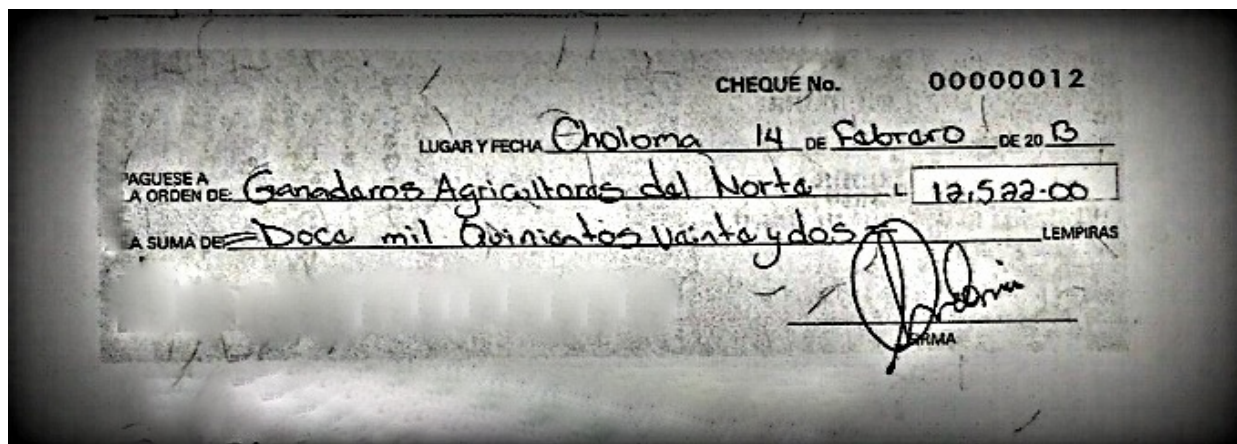 CHEQUE No. 00000012
LUGAR Y FECHA Choloma 14 DE Febrero DE 20 13
PAGUESE A
A ORDEN DE: Ganaderos Agricultores del Norte L 12,522.00
A SUMA DE: = Doce mil Quinientos Veinte y dos = LEMPIRAS
FIRMA